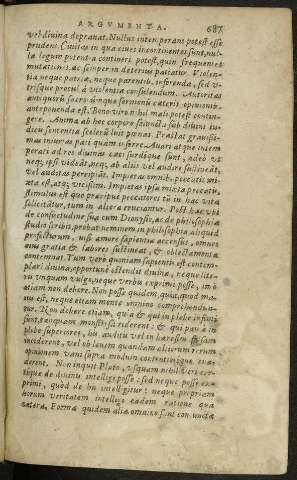 ARGVMENTA. 687
vel diuina deprauat. Nullus intemperans potest esse
prudens. Ciuitas in qua ciues incontinentes sunt, nul-
la legum potentia contineri potest, quin frequenter
mutationis, ac semper in deterius patiatur. Violen-
tia neque patriæ, neque parentib. inferenda, sed v-
trisque procul à violentia consulendum. Autoritas
antiquorũ sacro ũnque sermoni cæteris opinionib.
anteponenda est. Bono viro nihil mali potest contin-
gere. Anima ab hoc corpore seiuncta sub diuini iu-
dicii sententia scelerũ luit pœnas. Præstat grauissi-
mas iniurias pati quàm inferre. Auari atque intem
perati ad res diuinas cæci surdique sunt, adeò vt
neq; ipsi videãt, neq; ab aliis vel audire sustineãt,
vel auditas percipiãt. Impietas omnib. peccatis mi-
xta est, atq; vicissim. Impietas ipsa mixta peccatis,
stimulus est quo præcipuè peccatores tũ in hac vita
sollicitãtur, tum in altera cruciantur. Post hæc vbi
de consuetudine sua cum Dionysio, ac de philosophiæ
studio scribit, probat neminem in philosophia aliquid
profecturum, nisi amore sapientiæ accensus, omnes
eius gratia & labores sustineat, & oblectamenta
contemnat. Tum verò quoniam sapientis est contem
plari diuina, opportunè ostendit diuina, neque lite-
ris vnquam vulgò, neque verbis exprimi posse, imò
etiam non debere. Non posse quidem, quia, quod ma-
ius est, neque etiam mente omnino comprehendun-
tur. Non debere etiam, quia & qui in plebe infimi
sunt, tanquam monstrosa riderent: & qui paulò in
plebe superiores, his auditis vel in hæresim essent
inciderent, vel ob leuem quandam aliorum rerum
opinionem vani supra modum contentiosique eua-
derent. Non inquit Plato, vsquam nihil vera cer-
tique de diuinis intellige posse: sed neque posse ex-
primi, quod de his intelligitur: neque propriam
horum veritatem intellige eadem ratione qua
cætera. Formæ quidem aliæ omnino sunt con iuncta